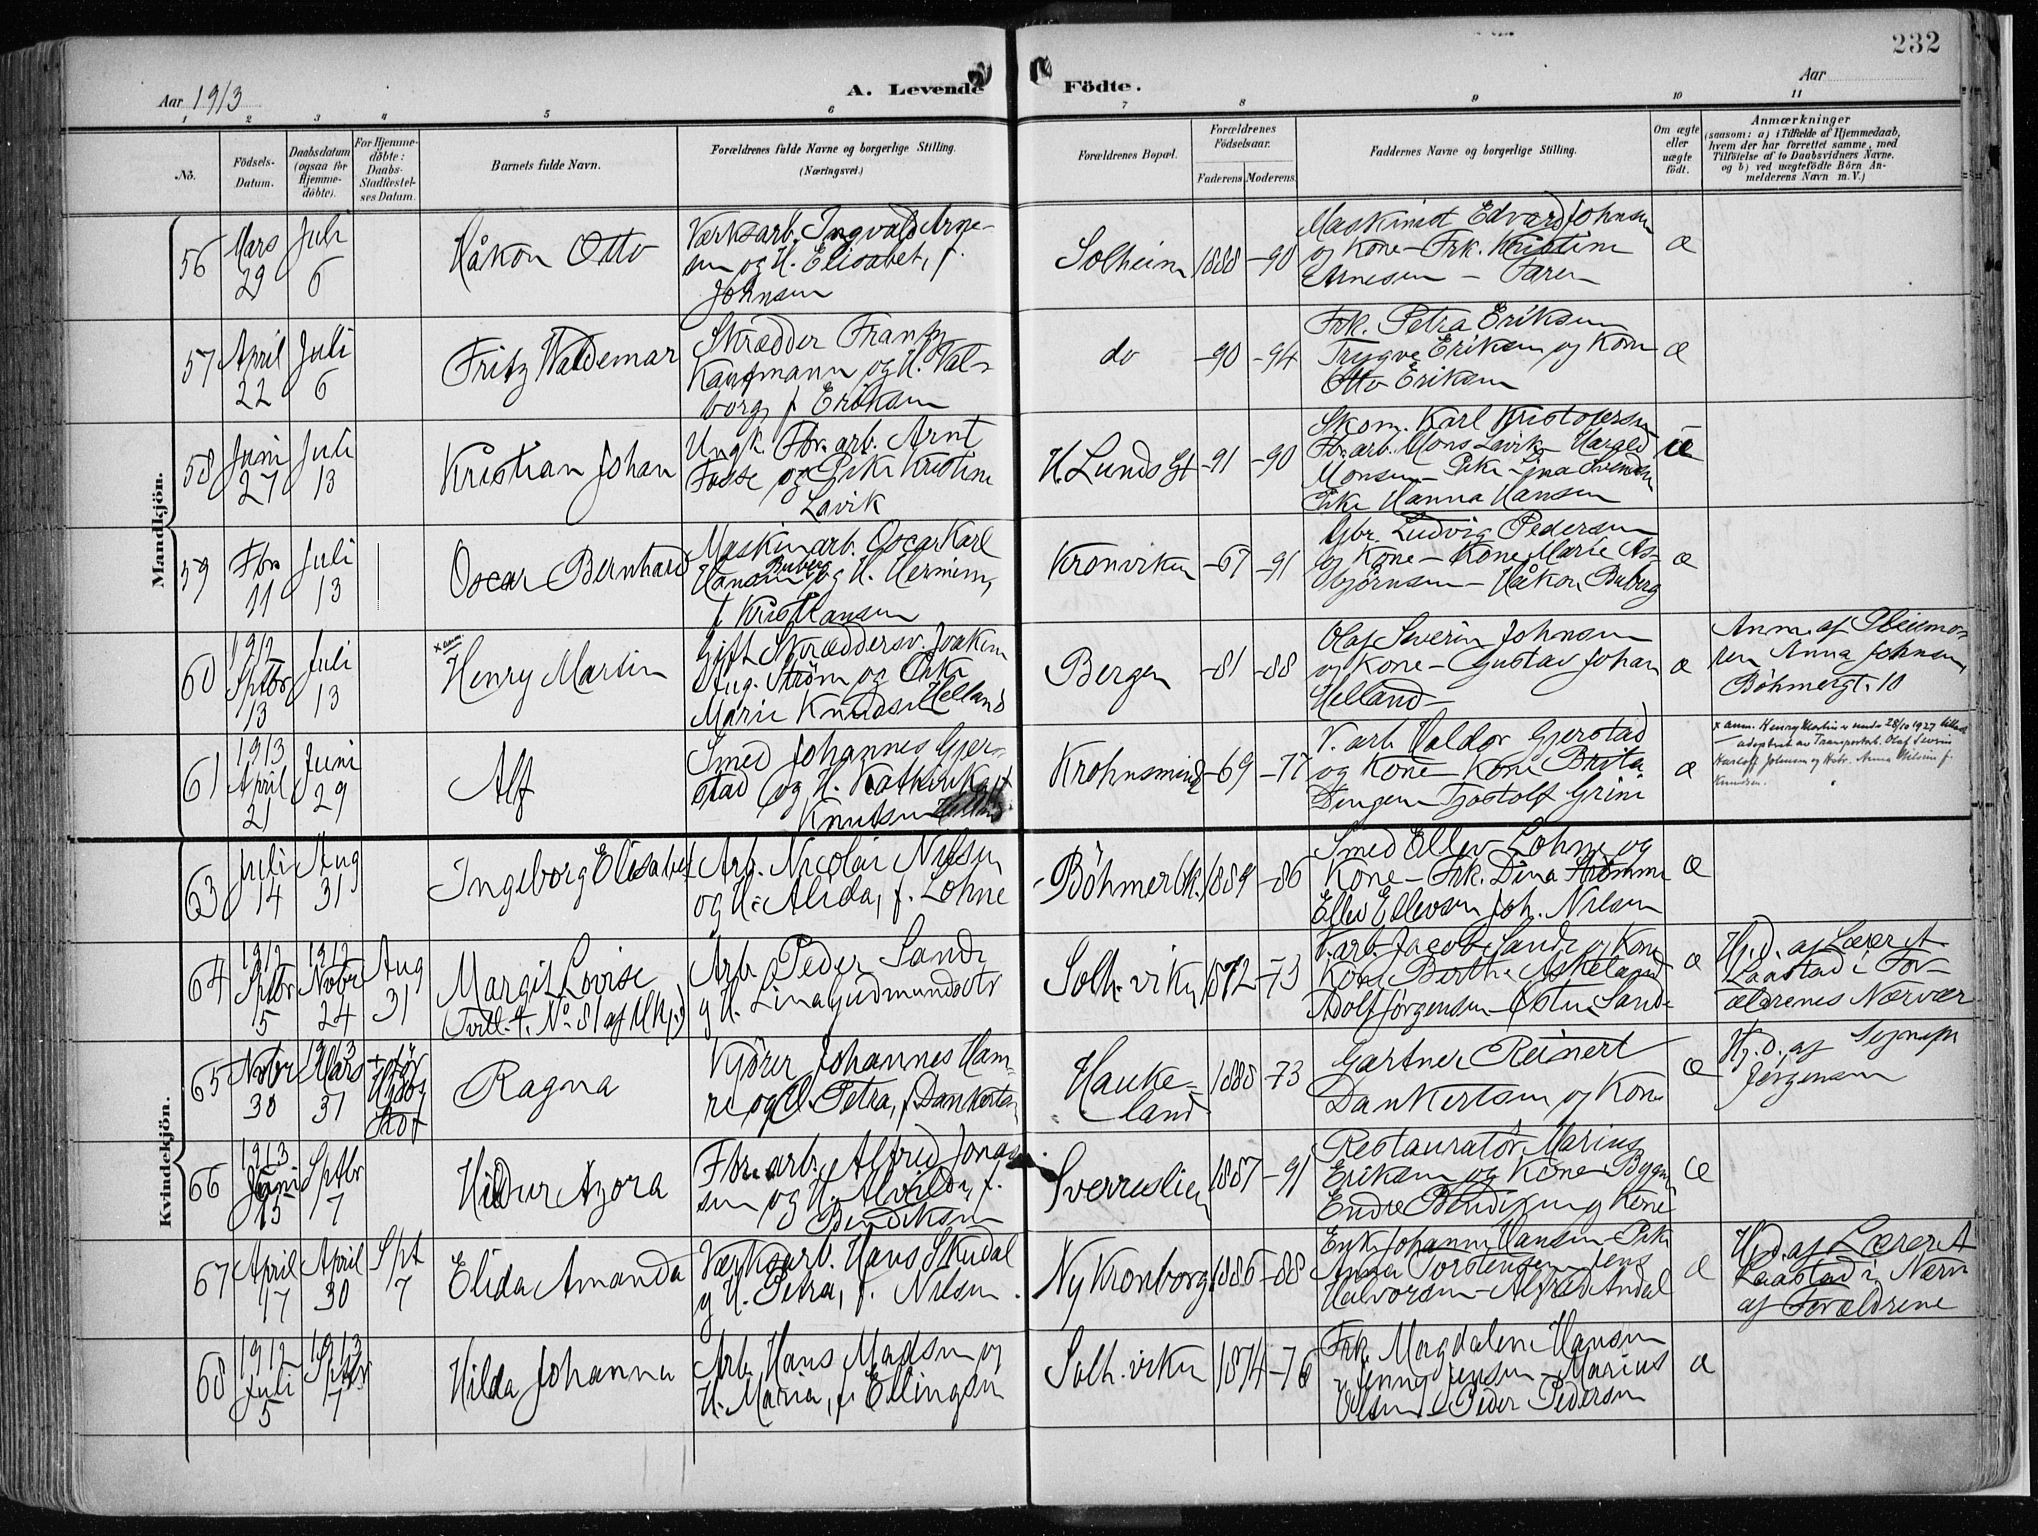 232
Aar 1913
A. Levende Födte.
Aar
1 2 3 4 5 6 7 8 9 10 11
No.
Födsels-
Datum.
Daabsdatum
(ogsaa for
Hjemme-
döbte).
For Hjemme-
döbte:
Daabs-
Stadfæstel-
ses Datum.
Barnets fulde Navn.
Forældrenes fulde Navne og borgerlige Stilling.
(Næringsvei.)
Forældrenes Bopæl.
Forældrenes
Födselsaar.
Faderens. Moderens.
Faddernes Navne og borgerlige Stilling.
Om ægte
eller
uægte
födt.
Anmærkninger
(saasom: a) i Tilfælde af Hjemmedaab,
hvem der har forrettet samme, med
Tilföielse af to Daabsvidners Navne,
og b) ved uægtefödte Börn An-
melderens Navn m. V.)
Mandkjön.
56
Mars
29
Juli
6
Håkon Otto
Værksarb. Ingvald Arne-
sen og H. Elisabet, f.
Johnsen
Solheim
1888
-90
Maskinist Edvard Johnsen
og Kone - Frk. Kristine
Arnesen - Faren
æ
57
April
22
Juli
6
Fritz Waldemar
Skrædder Frantz
Kaufmann og H. Val-
borg, f. Eriksen
do
-90
-94
Frk. Petra Eriksen
Trygve Eriksen og Kone
Otto Eriksen
æ
58
Juni
27
Juli
13
Kristian Johan
Ungk. Fbr. arb. Arnt
Fosse og Pike Kristine
Lavik
H. Lunds Gt
-91
-90
Skom. Karl Kristofersen
Fbr. arb. Mons Lavik - Harald
Monsen - Pike Lina Svendsen
Pike Hanna Hansen
59
Fbr
11
Juli
13
Oscar Bernhard
Maskinarb. Oscar Karl
Hansen Buberg og H. Hermine,
f. Kristiansen
Kronviken
-67
-91
Gbr. Ludvig Pedersen
og Kone - Kone Marie As-
bjørnsen - Håkon Buberg
æ
60
1912
Sptbr
13
Juli
13
x anm.
Henry Martin
Gift Skræddersv. Joakim
Aug. Strøm og Enke
Marie Knudsen Helland
Bergen
-81
-88
Olaf Severin Johnsen
og Kone - Gustav Johan
Helland -
æ
Anm. af Pleiemo-
ren Anna Johnsen
Böhmergt. 10
61
1913
April
21
Juni
29
Alf
Smed Johannes Gjer-
stad og H. Katrine f.
Knutsen
Krohnsminde
-69
-77
V. arb. Haldor Gjerstad
og Kone - Kone Brita
Dengen Tjostolf Grini
æ
x anm. Henry Martin er under 28/10 1927 tilladt
adoptert av Transportarb. Olaf Severin
Karloff Johnsen og Hstr. Anna Nilsine f.
Knudsen.
Kvindekjön.
63
Juli
14
Aug
31
Ingeborg Elisabet
Arb. Nicolai Nilsen
og H. Alida, f. Lohne
Böhmerbk.
1889
-86
Smed Ellev Lohne og
Kone - Frk. Dina Strømme
Ellev Ellevsen Joh. Nilsen
æ
64
1912
Sptbr
5
1912
Novbr
24
Aug
31
Margit Lovise
(Tvill. f. No. 81 af Mkj.)
Arb. Peder Sande
og H. Lina Gudmundsdtr
Solh. viken
1872
-73
V. arb. Jacob Sande og Kone
Kone Berthe Askeland
Adolf Jørgensen - Østen Sande
æ
Hj.d. af Lærer A
Laastad i For-
ældrenes Nærvær
65
Novbr
30
1913
Mars
31
+ før
Hjdbs
Stdf
Ragna
Kjører Johannes Ham-
re og H. Petra, f. Dankertsen
Hauke-
land
1880
-73
Gartner Reinert
Dankertsen og Kone
æ
Hj.d. af Sognepr
Jørgensen
66
1913
Juni
15
Sptbr
7
Hildur Azora
Fbr. arb. Alfred Jonas-
sen og H. Alvilde, f.
Bendiksen
Sverreslien
1887
-91
Restauratør Marius
Eriksen og Kone Bygm
Endre Bendixen og Kone
æ
67
April
17
April
30
Spt
7
Elida Amanda
Værksarb. Hans Skudal
og H. Petra, f. Nilsen
Ny Kronborg
1886
-88
Enk. Johanne Hansen Pike
Anna Torstensen Jens
Halvorsen - Alfred Andal
æ
Hj.d. af Lærer A
Laastad i Nærv
af Forældrene
68
1912
Juli
5
1913
Sptbr
7
Hilda Johanna
Arb. Hans Madsen og
H. Maria, f. Ellingsen
Solh. viken
1874
-76
Frk. Magdalene Hansen
Jenny Jensen - Marius
Olsen - Peder Pedersen
æ